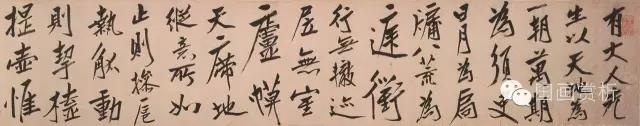 有大人先
生以天地為
一朝萬期
為須臾
日月為扃
牖八荒為
庭衢
行無轍迹
居無室
廬幕
天席地
縱意所如
止則操卮
執觚動
則挈榼
提壺惟
国画赏析